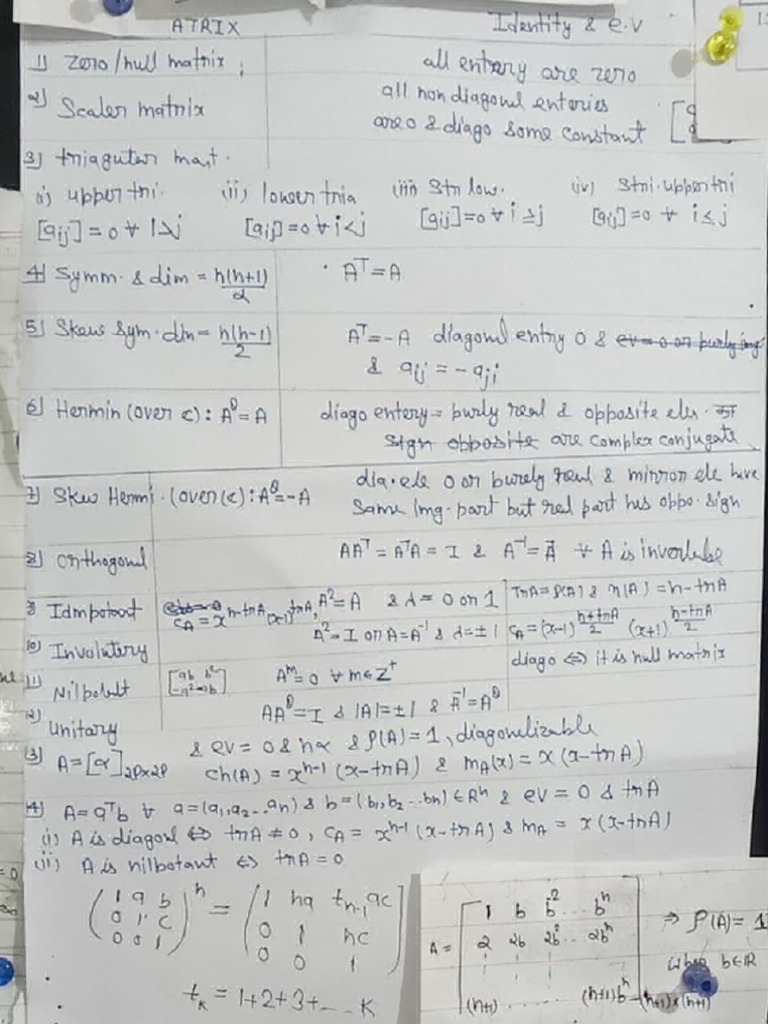 ATRIX Identity & e.v
1) Zero/null matrix ; all entery are zero
2) Scaler matrix all non diagonal enteries
are 0 & diago some constant
3) triagutar mat.
i) upper tri. (ii) lower tria (iii) Stri low. (iv) Stri. upper tri
[aij] = 0 ∀ i>j [aij] = 0 ∀ i<j [aij] = 0 ∀ i ≥ j [aij] = 0 ∀ i ≤ j
4) Symm. & dim = n(n+1)/2 · Aᵀ = A
5) Skew sym. dim = n(n-1)/2 Aᵀ = -A diagonal entry 0 & ev = 0 or purly img.
& aij = -aji
6) Hermin (over c) : A^θ = A diago entery = purly real & opposite ele. का
sign opposite are complex conjugate
7) Skew Hermi. (over c) : A^θ = -A dia. ele 0 or purely real & mirror ele have
same img. part but real part has oppo. sign
8) Orthogonal AAᵀ = AᵀA = I & A⁻¹ = Aᵀ ∀ A is invertable
9) Idmpotent C_A = x^(n-trA) (x-1)^trA, A² = A & λ = 0 or 1 TrA = ρ(A) & η(A) = n - trA
10) Involutery A² = I or A = A⁻¹ & λ = ±1 C_A = (x-1)^((n+trA)/2) (x+1)^((n-trA)/2)
11) Nilpotent [ab b² -a² -ab] Aᵐ = 0 ∀ m ∈ Z⁺ diago ⇔ it is null matrix
12) Unitary AA^θ = I & |A| = ±1 & A⁻¹ = A^θ
13) A = [α] & ev = 0 & nα & ρ(A) = 1, diagonalizable
ch(A) = xⁿ⁻¹ (x - trA) & m_A(x) = x (x - trA)
14) A = aᵀb ∀ a = (a₁, a₂ .. an) & b = (b₁, b₂ .. bn) ∈ Rⁿ & ev = 0 & trA
(i) A is diagonl ⇔ trA ≠ 0, C_A = xⁿ⁻¹ (x - trA) & m_A = x (x - trA)
(ii) A is nilpotant ⇔ trA = 0
(1 a b
0 1 c
0 0 1)ⁿ = (1 na t_(n-1) ac
0 1 nc
0 0 1]
t_k = 1+2+3+ ... k
A = [1 b b² ... bⁿ
2 2b 2b² .. 2bⁿ
(n+1) ...... (n+1)bⁿ] (n+1)×(n+1)
⇒ ρ(A) = 1
b ∈ R